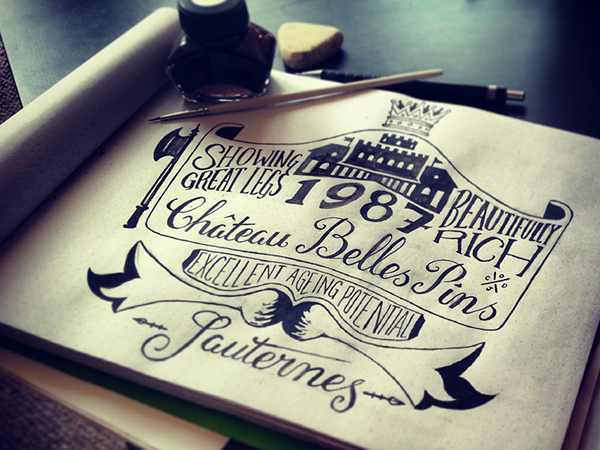 SHOWING
GREAT LEGS
1987
BEAUTIFULLY
RICH
Château Belles Pins
EXCELLENT AGEING POTENTIAL
Sauternes